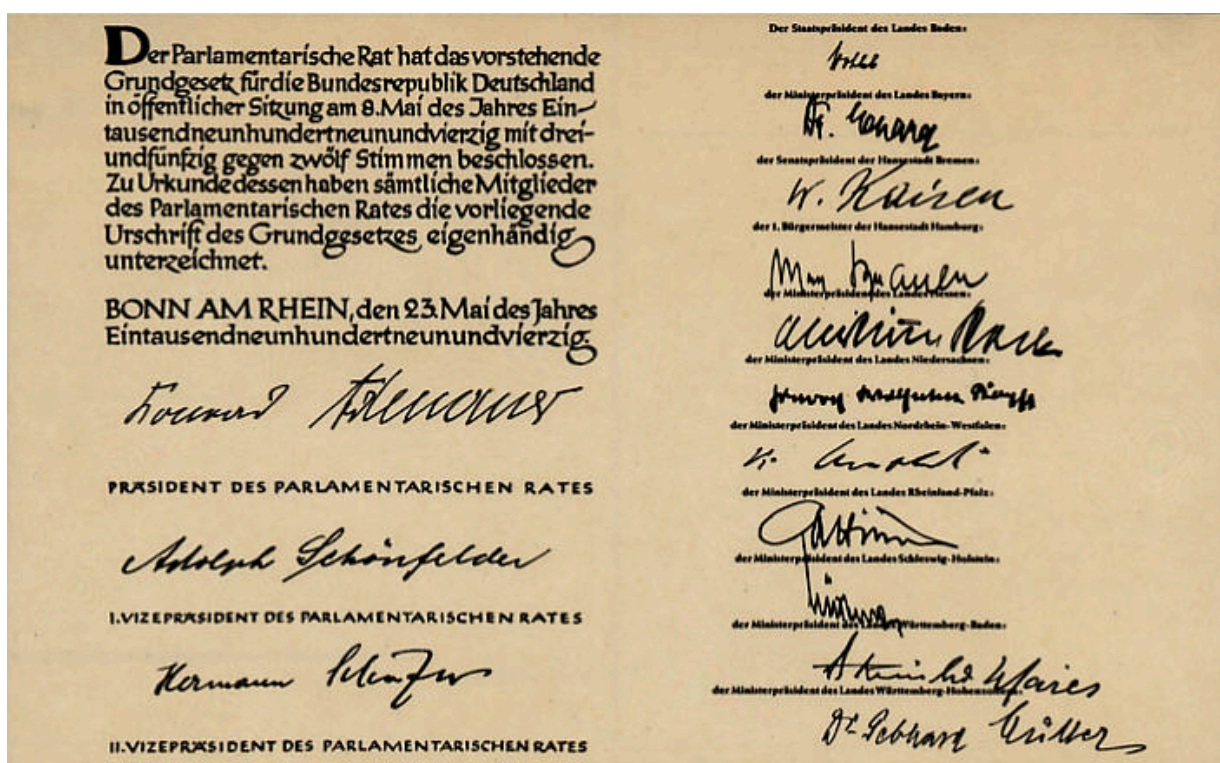 Der Parlamentarische Rat hat das vorstehende
Grundgesetz für die Bundesrepublik Deutschland
in öffentlicher Sitzung am 8. Mai des Jahres Ein-
tausendneunhundertneunundvierzig mit drei-
undfünfzig gegen zwölf Stimmen beschlossen.
Zu Urkunde dessen haben sämtliche Mitglieder
des Parlamentarischen Rates die vorliegende
Urschrift des Grundgesetzes eigenhändig
unterzeichnet.
BONN AM RHEIN, den 23. Mai des Jahres
Eintausendneunhundertneunundvierzig.
Konrad Adenauer
PRÄSIDENT DES PARLAMENTARISCHEN RATES
Adolph Schönfelder
I. VIZEPRÄSIDENT DES PARLAMENTARISCHEN RATES
Hermann Schäfer
II. VIZEPRÄSIDENT DES PARLAMENTARISCHEN RATES
Der Staatspräsident des Landes Baden:
der Ministerpräsident des Landes Bayern:
Dr. Ehard
der Senatspräsident der Hansestadt Bremen:
W. Kaisen
der 1. Bürgermeister der Hansestadt Hamburg:
Max Brauer
der Ministerpräsident des Landes Hessen:
Christian Stock
der Ministerpräsident des Landes Niedersachsen:
Hinrich Wilhelm Kopf
der Ministerpräsident des Landes Nordrhein-Westfalen:
K. Arnold
der Ministerpräsident des Landes Rheinland-Pfalz:
Altmeier
der Ministerpräsident des Landes Schleswig-Holstein:
Lüdemann
der Ministerpräsident des Landes Württemberg-Baden:
Reinhold Maier
der Ministerpräsident des Landes Württemberg-Hohenzollern:
Dr. Gebhard Müller